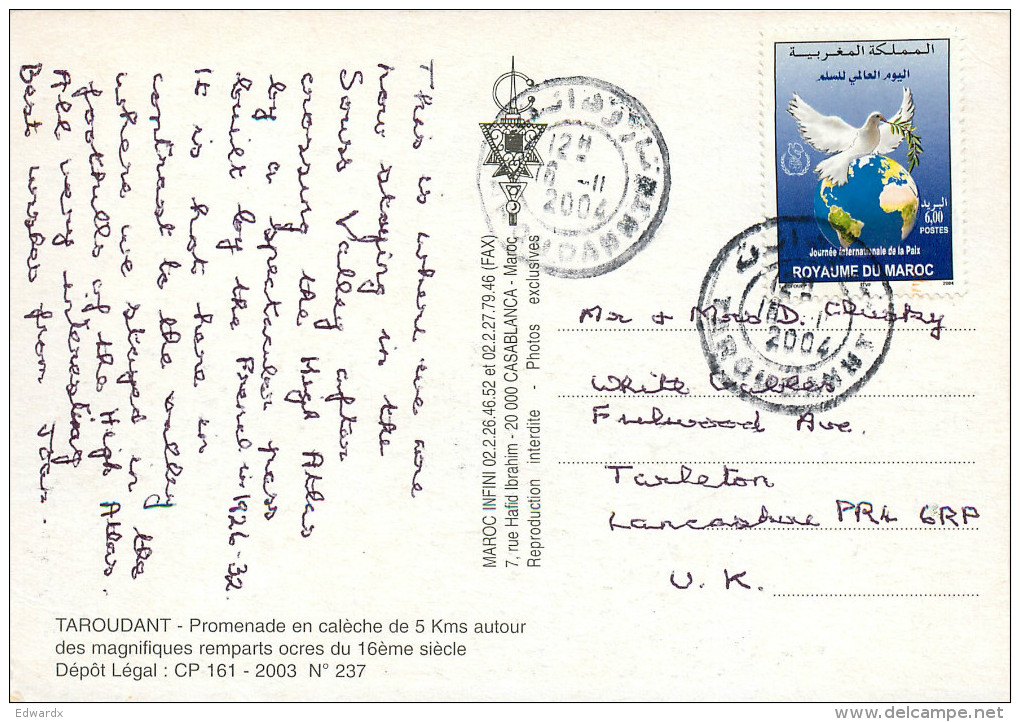 This is where we are
now staying in the
Souss Valley after
crossing the High Atlas
by a spectacular pass
built by the French in 1926-32.
It is hot here in
contrast to the valley
where we stayed in the
foothills of the High Atlas.
All very interesting
Best wishes from Joan.
TAROUDANT - Promenade en calèche de 5 Kms autour
des magnifiques remparts ocres du 16ème siècle
Dépôt Légal : CP 161 - 2003 N° 237
MAROC INFINI 02.2.26.46.52 et 02.2.27.79.46 (FAX)
7, rue Hafid Ibrahim - 20 000 CASABLANCA - Maroc
Reproduction interdite - Photos exclusives
12H
2004
المملكة المغربية
اليوم العالمي للسلم
البريد
6,00
POSTES
Journée internationale de la Paix
ROYAUME DU MAROC
2004
2004
Mr & Mrs D.
White
Fulwood Ave.
Tarleton
Lancashire PR4 6RP
U.K.
Edwardx
www.delcampe.net